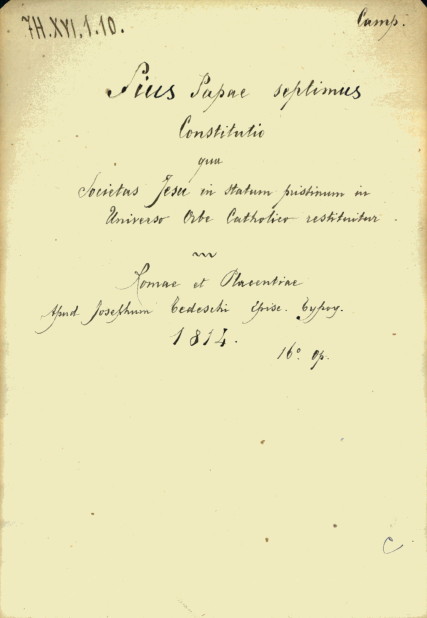 7H.XVI.1.10.
Camp.
Pius Papae septimus
Constitutio
qua
Societas Jesu in statum pristinum in
Universo Orbe Catholico restituitur.
Romae et Placentiae
Apud Josephum Tedeschi Episc. Typog.
1814.
16° op.
C